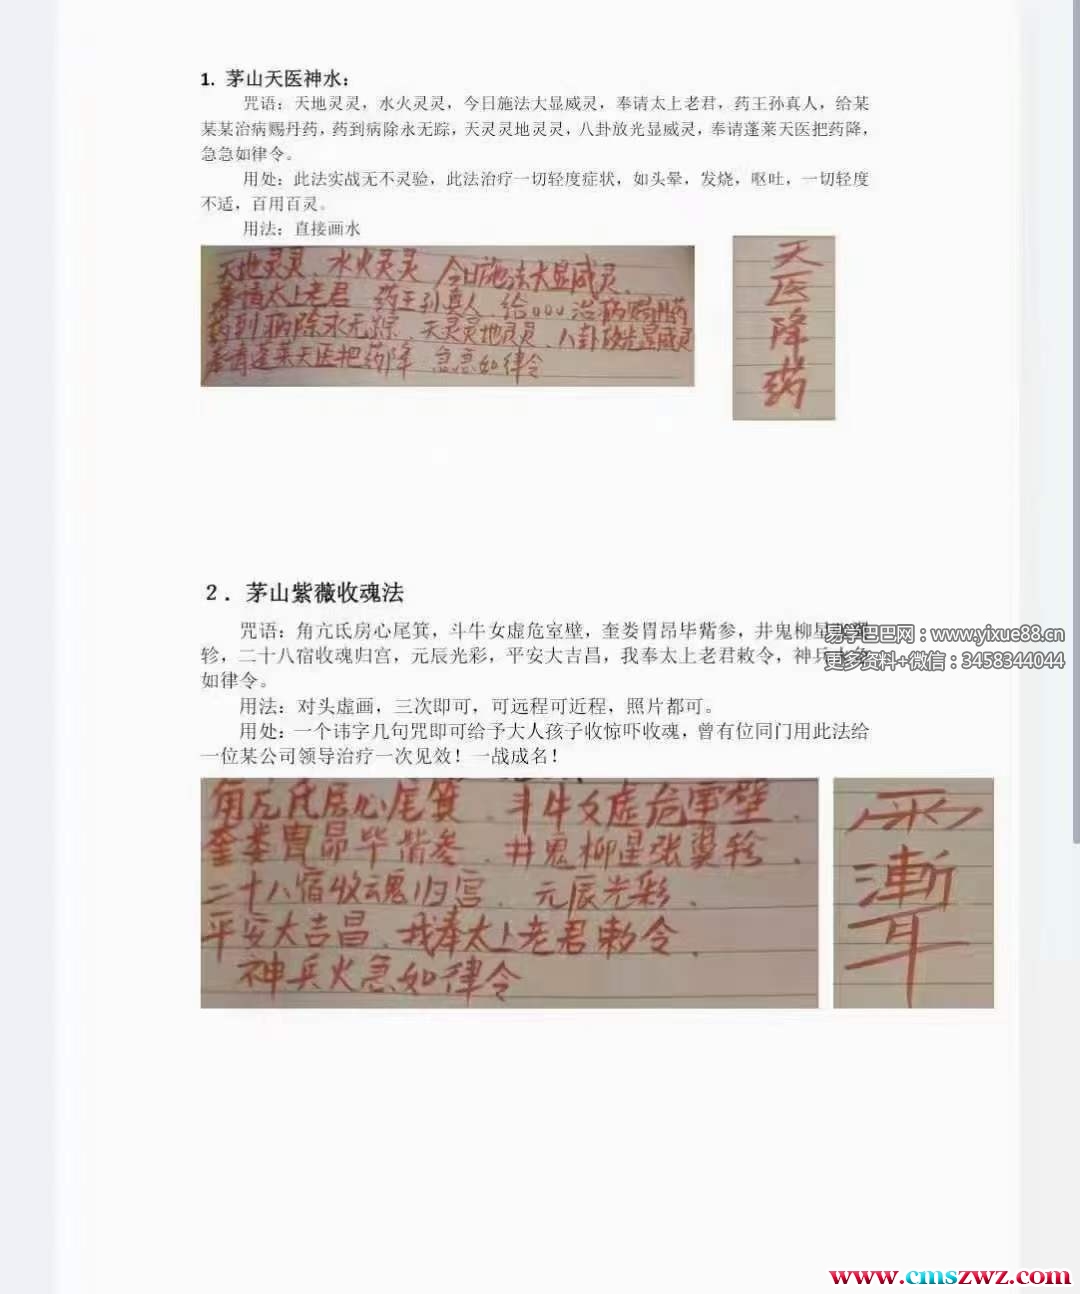 1. 茅山天医神水：
咒语：天地灵灵，水火灵灵，今日施法大显威灵，奉请太上老君，药王孙真人，给某
某某治病赐丹药，药到病除永无踪，天灵灵地灵灵，八卦放光显威灵，奉请蓬莱天医把药降，
急急如律令。
用处：此法实战无不灵验，此法治疗一切轻度症状，如头晕，发烧，呕吐，一切轻度
不适，百用百灵。
用法：直接画水
天地灵灵、水火灵灵 今日施法大显威灵、
奉请太上老君 药王孙真人、给000治病赐丹药
药到病除永无踪、天灵灵地灵灵、八卦放光显威灵
奉请蓬莱天医把药降 急急如律令
天医降药
2．茅山紫薇收魂法
咒语：角亢氐房心尾箕，斗牛女虚危室壁，奎娄胃昴毕觜参，井鬼柳星
轸，二十八宿收魂归宫，元辰光彩，平安大吉昌，我奉太上老君敕令，神兵
如律令。
易学巴巴网：www.yixue88.cn
更多资料+微信：3458344044
用法：对头虚画，三次即可，可远程可近程，照片都可。
用处：一个讳字几句咒即可给予大人孩子收惊吓收魂，曾有位同门用此法给
一位某公司领导治疗一次见效！一战成名！
角亢氐房心尾箕、斗牛女虚危室壁、
奎娄胃昴毕觜参、井鬼柳星张翼轸、
二十八宿收魂归宫、元辰光彩、
平安大吉昌、我奉太上老君敕令、
神兵火急如律令
www.cmszwz.com